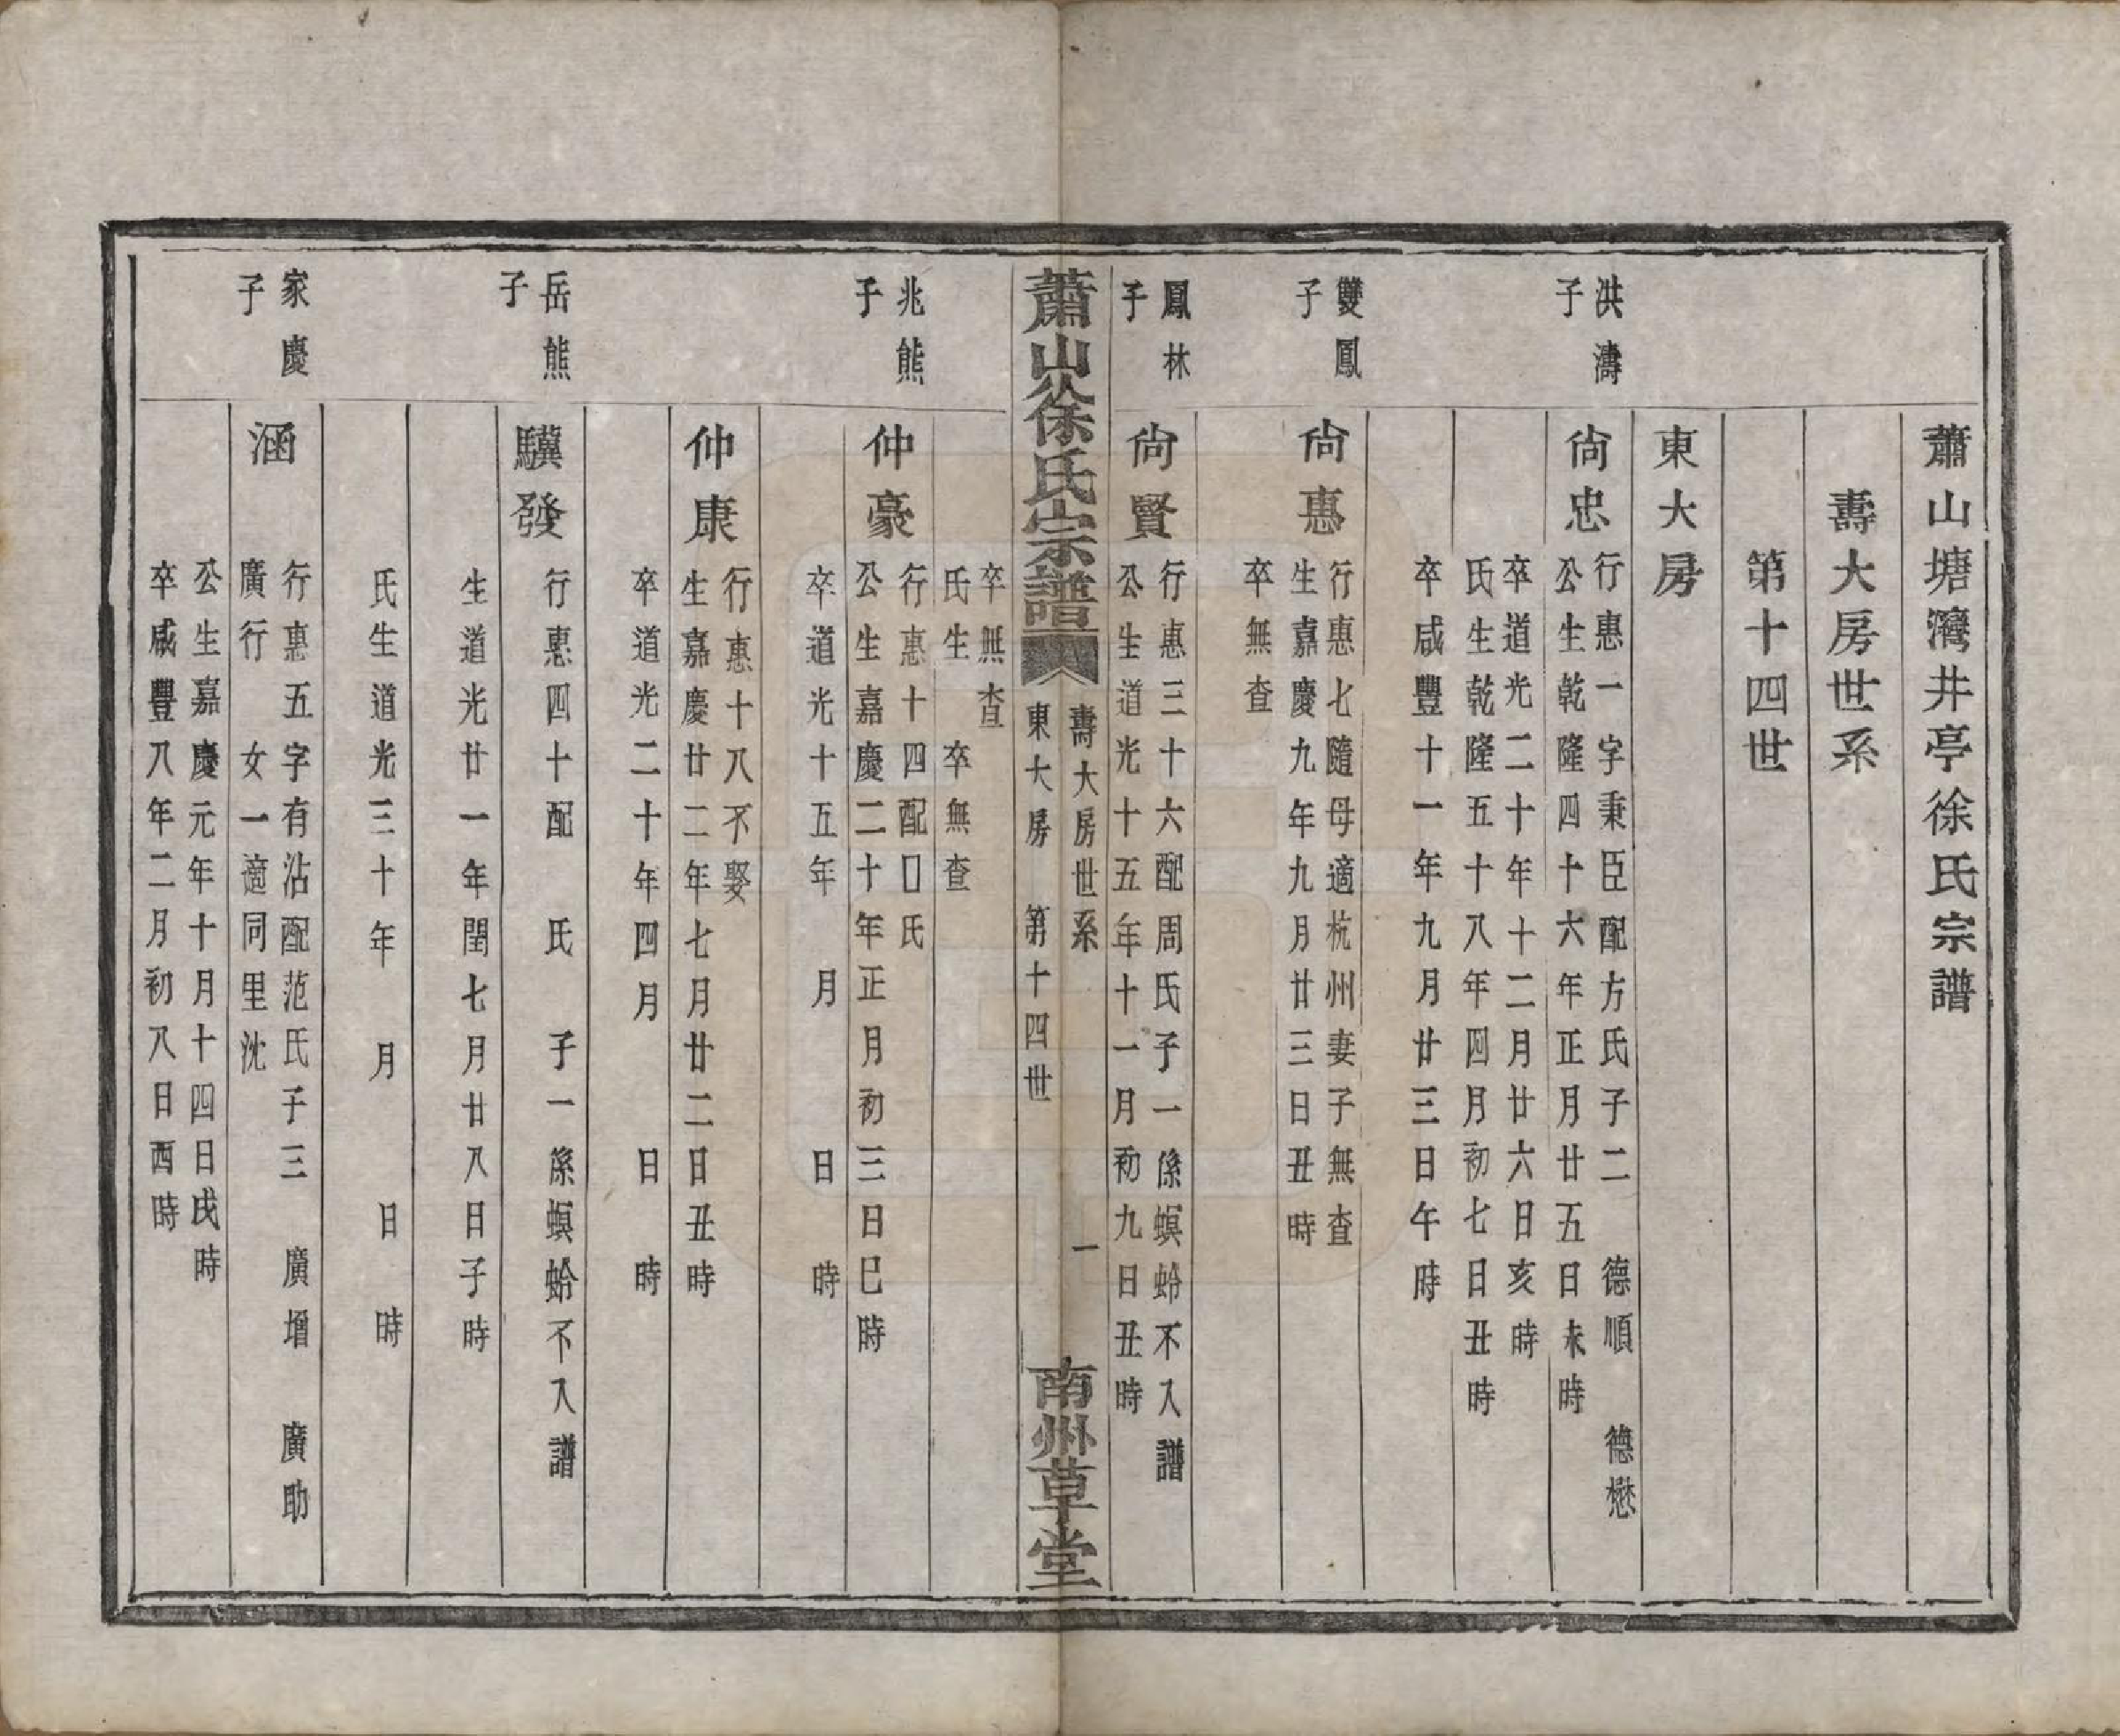 蕭山塘灣井亭徐氏宗譜
壽大房世系
第十四世
東大房
洪濤
子
尙忠
行惠一字秉臣配方氏子二　德順　德懋
公生乾隆四十六年正月廿五日未時
卒道光二十年十二月廿六日亥時
氏生乾隆五十八年四月初七日丑時
卒咸豐十一年九月廿三日午時
雙鳳
子
尙惠
行惠七隨母適杭州妻子無查
生嘉慶九年九月廿三日丑時
卒無查
鳳林
子
尙賢
行惠三十六配周氏子一係螟蛉不入譜
公生道光十五年十一月初九日丑時
蕭山徐氏宗譜
壽大房世系　一
東大房　第十四世
南州草堂
卒無查
氏生　卒無查
兆熊
子
仲豪
行惠十四配口氏
公生嘉慶二十年正月初三日巳時
卒道光十五年　月　日　時
仲康
行惠十八不娶
生嘉慶廿二年七月廿二日丑時
卒道光二十年四月　日　時
岳熊
子
驥發
行惠四十配　氏　子一係螟蛤不入譜
生道光廿一年閏七月廿八日子時
氏生道光三十年　月　日　時
家慶
子
涵
行惠五字有沾配范氏子三　廣增　廣助
廣行　女一適同里沈
公生嘉慶元年十月十四日戌時
卒咸豐八年二月初八日酉時